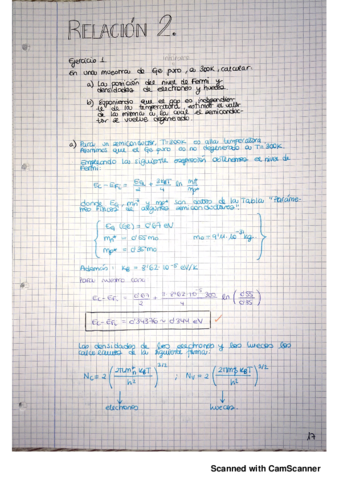 RELACIÓN 2.
Ejercicio 1
En una muestra de Ge puro, a 300K, calcular:
a) Las posición del nivel de Fermi y
densidades de electrones y huecos.
b) Suponiendo que el gap es independien-
te de la temperatura, estimar el valor
de la misma a la cual el semiconduc-
tor se vuelve degenerado.
a) Para un semiconductor, T=300K es alta temperatura.
Asumimos que el Ge puro es no degenerado a T=300K.
Empleando la siguiente expresión obtenemos el nivel de
Fermi:
Ec - EFi = EG/2 + 3KBT/4 ln mn*/mp*
donde EG, mn* y mp* son datos de la Tabla "Paráme-
tros físicos de algunos semiconductores".
EG (Ge) = 0'67 eV
mn* = 0'55 mo
mp* = 0'35 mo
mo = 9'11·10⁻³¹
Además KB = 8'62·10⁻⁵ eV/K
Para nuestro caso:
Ec - EFi = 0'67/2 + 3·8'62·10⁻⁵·300/4 ln (0'55/0'35)
Ec - EFi = 0'34376 ~ 0'344 eV
Las densidades de los electrones y los huecos las
calculamos de la siguiente forma:
Nc = 2 (2πmn* KBT/h²)^3/2 ; Nv = 2 (2πmp* KBT/h²)^3/2
electrones huecos
17
Scanned with CamScanner